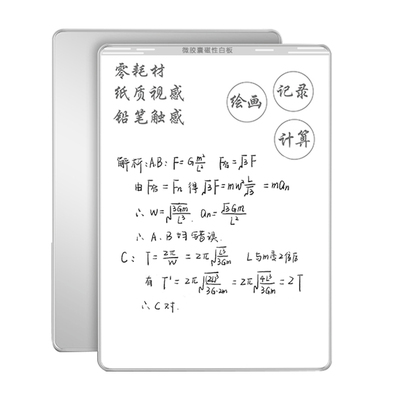 微胶囊磁性白板
零耗材
纸质视感
铅笔触感
绘画
记录
计算
解析:AB: F=G m²/L² F合=√3F
由 F合=Fn 得 √3F=mω² L/√3 =man
∴ W=√(3Gm/L³) an=√3Gm/L²
∴ A、B 错误.
C: T=2π/W =2π√(L³/3Gm) L与m变2倍后
有 T'=2π√((2L)³/3G·2m) =2π√(4L³/3Gm) =2T
∴ C对.